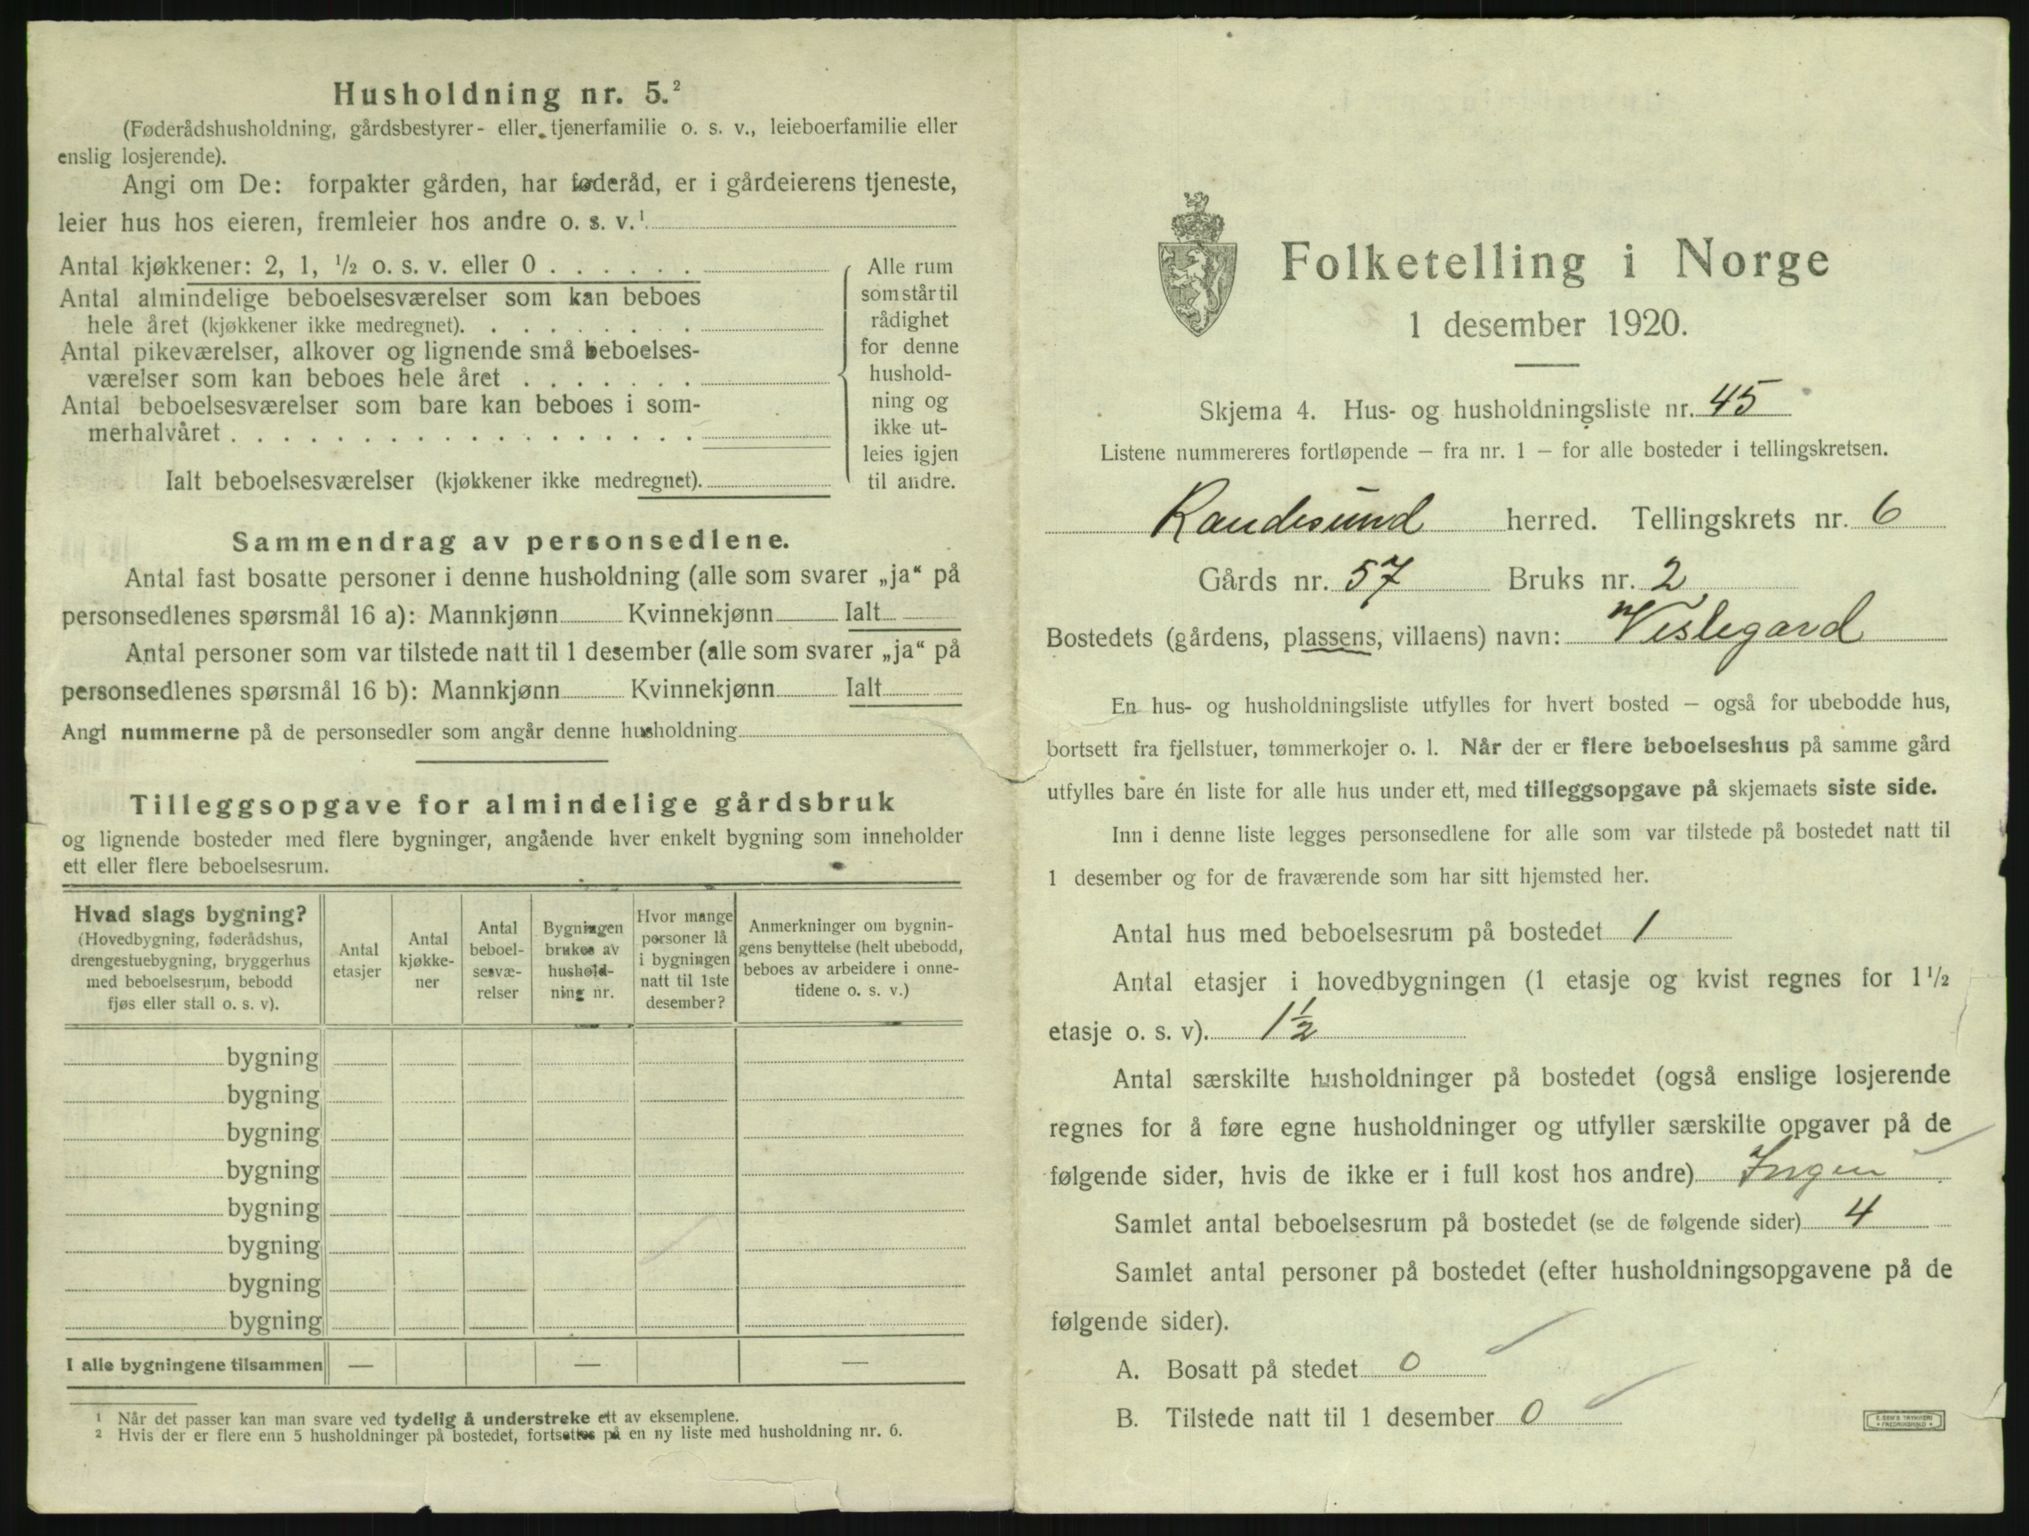 Husholdning nr. 5.²
(Føderådshusholdning, gårdsbestyrer- eller tjenerfamilie o. s. v., leieboerfamilie eller
enslig losjerende).
Angi om De: forpakter gården, har føderåd, er i gårdeierens tjeneste,
leier hus hos eieren, fremleier hos andre o. s. v.¹
Antal kjøkkener: 2, 1, ½ o. s. v. eller 0 . . . . . .
Antal almindelige beboelsesværelser som kan beboes
hele året (kjøkkener ikke medregnet). . . . . . . . .
Antal pikeværelser, alkover og lignende små beboelses-
værelser som kan beboes hele året . . . . . . .
Antal beboelsesværelser som bare kan beboes i som-
merhalvåret . . . . . . . . . . . . . . . . . .
Ialt beboelsesværelser (kjøkkener ikke medregnet).
Alle rum
som står til
rådighet
for denne
hushold-
ning og
ikke ut-
leies igjen
til andre.
Sammendrag av personsedlene.
Antal fast bosatte personer i denne husholdning (alle som svarer „ja“ på
personsedlenes spørsmål 16 a): Mannkjønn Kvinnekjønn Ialt
Antal personer som var tilstede natt til 1 desember (alle som svarer „ja“ på
personsedlenes spørsmål 16 b): Mannkjønn Kvinnekjønn Ialt
Angi nummerne på de personsedler som angår denne husholdning
Tilleggsopgave for almindelige gårdsbruk
og lignende bosteder med flere bygninger, angående hver enkelt bygning som inneholder
ett eller flere beboelsesrum.
Hvad slags bygning?
(Hovedbygning, føderådshus,
drengestuebygning, bryggerhus
med beboelsesrum, bebodd
fjøs eller stall o. s. v).
Antal
etasjer
Antal
kjøkke-
ner
Antal
beboel-
sesvæ-
relser
Bygningen
brukes av
hushold-
ning nr.
Hvor mange
personer lå
i bygningen
natt til 1ste
desember?
Anmerkninger om bygnin-
gens benyttelse (helt ubebodd,
beboes av arbeidere i onne-
tidene o. s. v.)
bygning
bygning
bygning
bygning
bygning
bygning
bygning
bygning
I alle bygningene tilsammen — — —
¹ Når det passer kan man svare ved tydelig å understreke ett av eksemplene.
² Hvis der er flere enn 5 husholdninger på bostedet, fortsettes på en ny liste med husholdning nr. 6.
Folketelling i Norge
1 desember 1920.
Skjema 4. Hus- og husholdningsliste nr. 45
Listene nummereres fortløpende – fra nr. 1 – for alle bosteder i tellingskretsen.
Randesund herred. Tellingskrets nr. 6
Gårds nr. 57 Bruks nr. 2
Bostedets (gårdens, plassens, villaens) navn: Veslegard
En hus- og husholdningsliste utfylles for hvert bosted – også for ubebodde hus,
bortsett fra fjellstuer, tømmerkojer o. l. Når der er flere beboelseshus på samme gård
utfylles bare én liste for alle hus under ett, med tilleggsopgave på skjemaets siste side.
Inn i denne liste legges personsedlene for alle som var tilstede på bostedet natt til
1 desember og for de fraværende som har sitt hjemsted her.
Antal hus med beboelsesrum på bostedet 1
Antal etasjer i hovedbygningen (1 etasje og kvist regnes for 1½
etasje o. s. v). 1½
Antal særskilte husholdninger på bostedet (også enslige losjerende
regnes for å føre egne husholdninger og utfyller særskilte opgaver på de
følgende sider, hvis de ikke er i full kost hos andre) Ingen
Samlet antal beboelsesrum på bostedet (se de følgende sider) 4
Samlet antal personer på bostedet (efter husholdningsopgavene på de
følgende sider).
A. Bosatt på stedet 0
B. Tilstede natt til 1 desember 0